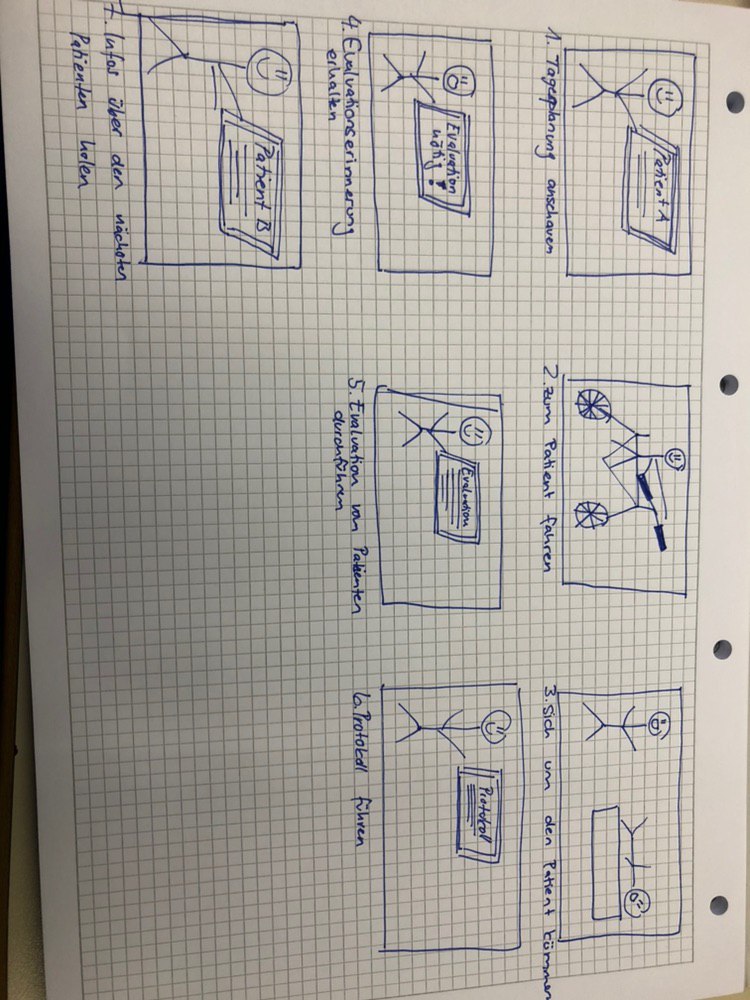 Patient A
1. Tagesplanung anschauen
2. zum Patient fahren
3. Sich um den Patient kümmern
Evaluation
nötig!
4. Evaluationserinnerung
erhalten
Evaluation
5. Evaluation von Patienten
durchführen
Protokoll
6. Protokoll führen
Patient B
7. Infos über den nächsten
Patienten holen